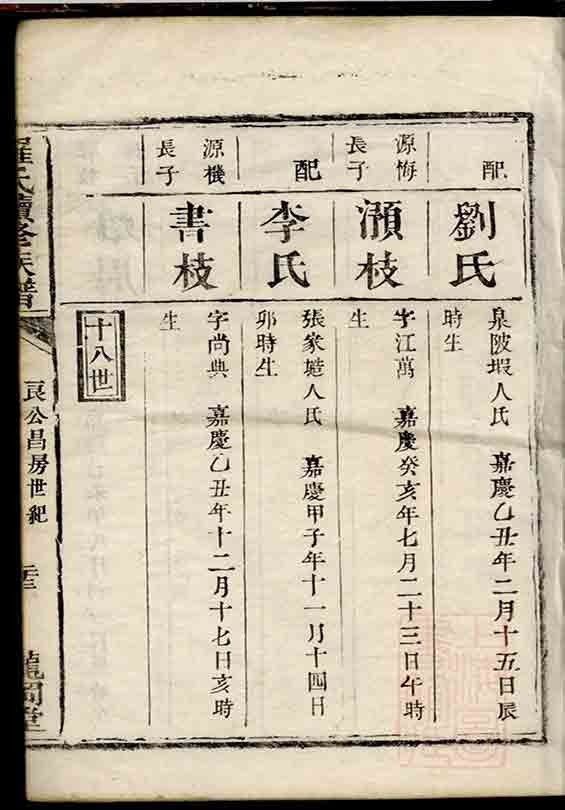 配
劉氏
泉陂塅人氏 嘉慶乙丑年二月十五日辰
時生
源悔
長子
瀕枝
字江萬 嘉慶癸亥年七月二十三日午時
生
配
李氏
張家塘人氏 嘉慶甲子年十一月十四日
卯時生
源機
長子
書枝
字尚典 嘉慶乙丑年十二月十七日亥時
生
十八世
羅氏續修族譜
良公昌房世紀